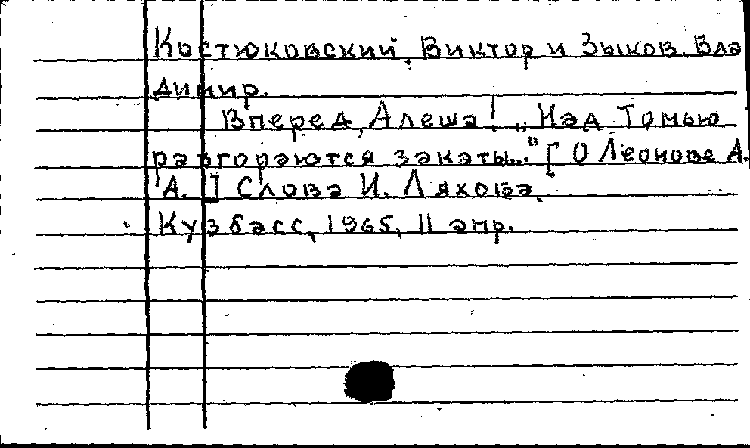 Костюковский, Виктор и Зыков Вла
димир.
Вперед, Алеша! „Над Томью
разгораются закаты..." [О Леонове А.
А.] Слова И. Ляхова.
Кузбасс, 1965, 11 апр.